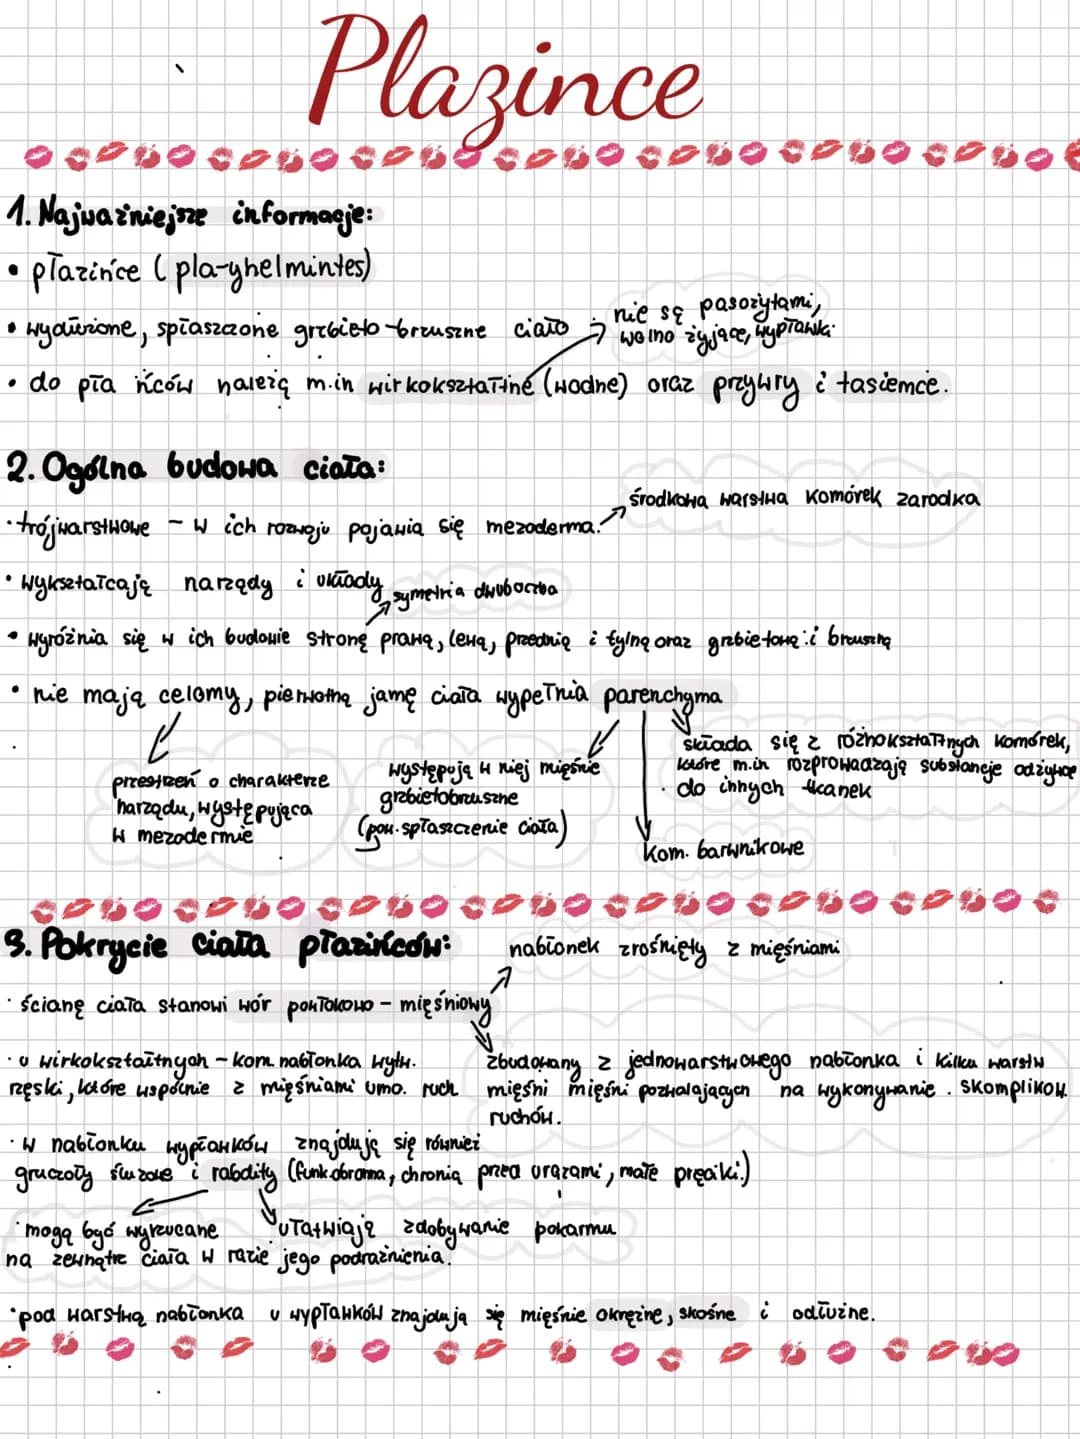 Plazince
1. Najważniejsze informacje:
• płazińce (pla-yhelmintes)
nie są pasożytami,
• wydłużone, spłaszczone grzbieto-brzuszne ciało
wolno żyjące, wypławki
• do pła ińców należą m.in wirkokształtne (wodne) oraz przywry i tasiemce.
2. Ogólna budowa ciała:
środkowa warstwa komórek zarodka
• trójwarstwowe - w ich rozwoju pojawia się mezoderma.
• wykształcają narządy i układy
symetria dwuboczna
• wyróżnia się w ich budowie stronę prawą, lewą, przednią i tylną oraz grzbietową i brzuszną
• nie mają celomy, pierwotną jamę ciała wypełnia parenchyma
przestrzeń o charakterze
narządu, występująca
w mezodermie
występują w niej mięśnie
grzbietobrzuszne
(pow. spłaszczenie ciała)
składa się z różnokształtnych komórek,
które m.in rozprowadzają substancje odżywcze
do innych tkanek
kom. barwnikowe
3. Pokrycie ciała płazińców:
nabłonek zrośnięty z mięśniami
• ścianę ciała stanowi wór powłokowo - mięśniowy
zbudowany z jednowarstwowego nabłonka i kilku warstw
mięśni mięśni pozwalających na wykonywanie . skomplikow.
ruchów.
• u wirkokształtnych - kom. nabłonka wytw.
rzęski, które wspólnie z mięśniami umo. ruch
• w nabłonku wypławków znajdują się również
gruczoły śluzowe i rabdity (funk. obronna, chronią przed urazami, małe pręciki)
• mogą być wyrzucane
na zewnątrz ciała w razie jego podrażnienia.
ułatwiają zdobywanie pokarmu
• pod warstwą nabłonka u wypławków znajdują się mięśnie okrężne, skośne i odłużne.